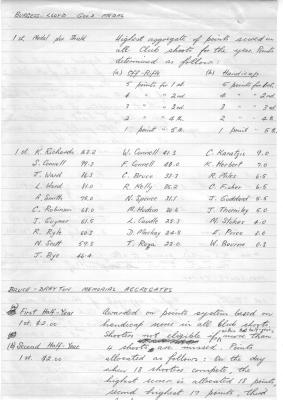 BURGESS-LLOYD GOLD MEDAL
1st Medal per Shield Highest aggregate of points scored in
all Club shoots for the year. Points
determined as follows:
(a) Off-Rifle (b) Handicap
5 points for 1st 5 points for 1st.
4 " " 2nd 4 " " 2nd
3 " " 3rd 3 " " 3rd
2 " " 4th 2 " " 4th.
1 point " 5th. 1 point " 5th.
1st K. Richards W. Connell 41.3 C. Kanatzis 9.0
S. Connell 99.3 F. Connell K. Herbert 7.0
T. Ward C. Bruce 33.3 R. Miles 6.5
L. Ward 81.0 R. Kelly C. Fisher 6.5
A. Smith N. Spence J. Goddard 5.5
C. Robinson 68.0 M. Hudson J. Thornley 5.0
I. Guynes 61.5 L. Caudle 25.3 M. Stokes 4.0
K. Ryle 60.3 D. Mackay 24.8 E. Price 2.0
N. Scott 59.5 T. Roza 22.0 W. Bourne 0.3
J. Bye 46.4
BRUCE-DRAYTON MEMORIAL AGGREGATES
First Half-Year Awarded on points system based on
1st. $2.00 handicap scores in all club shoots.
Shooters not eligible if more than
(b) Second Half-Year 4 shoots are missed. Points
1st. $2.00 allocated as follows: On the day
when 18 shooters compete, the
highest scorer is allocated 18 points,
second highest 17 points, third